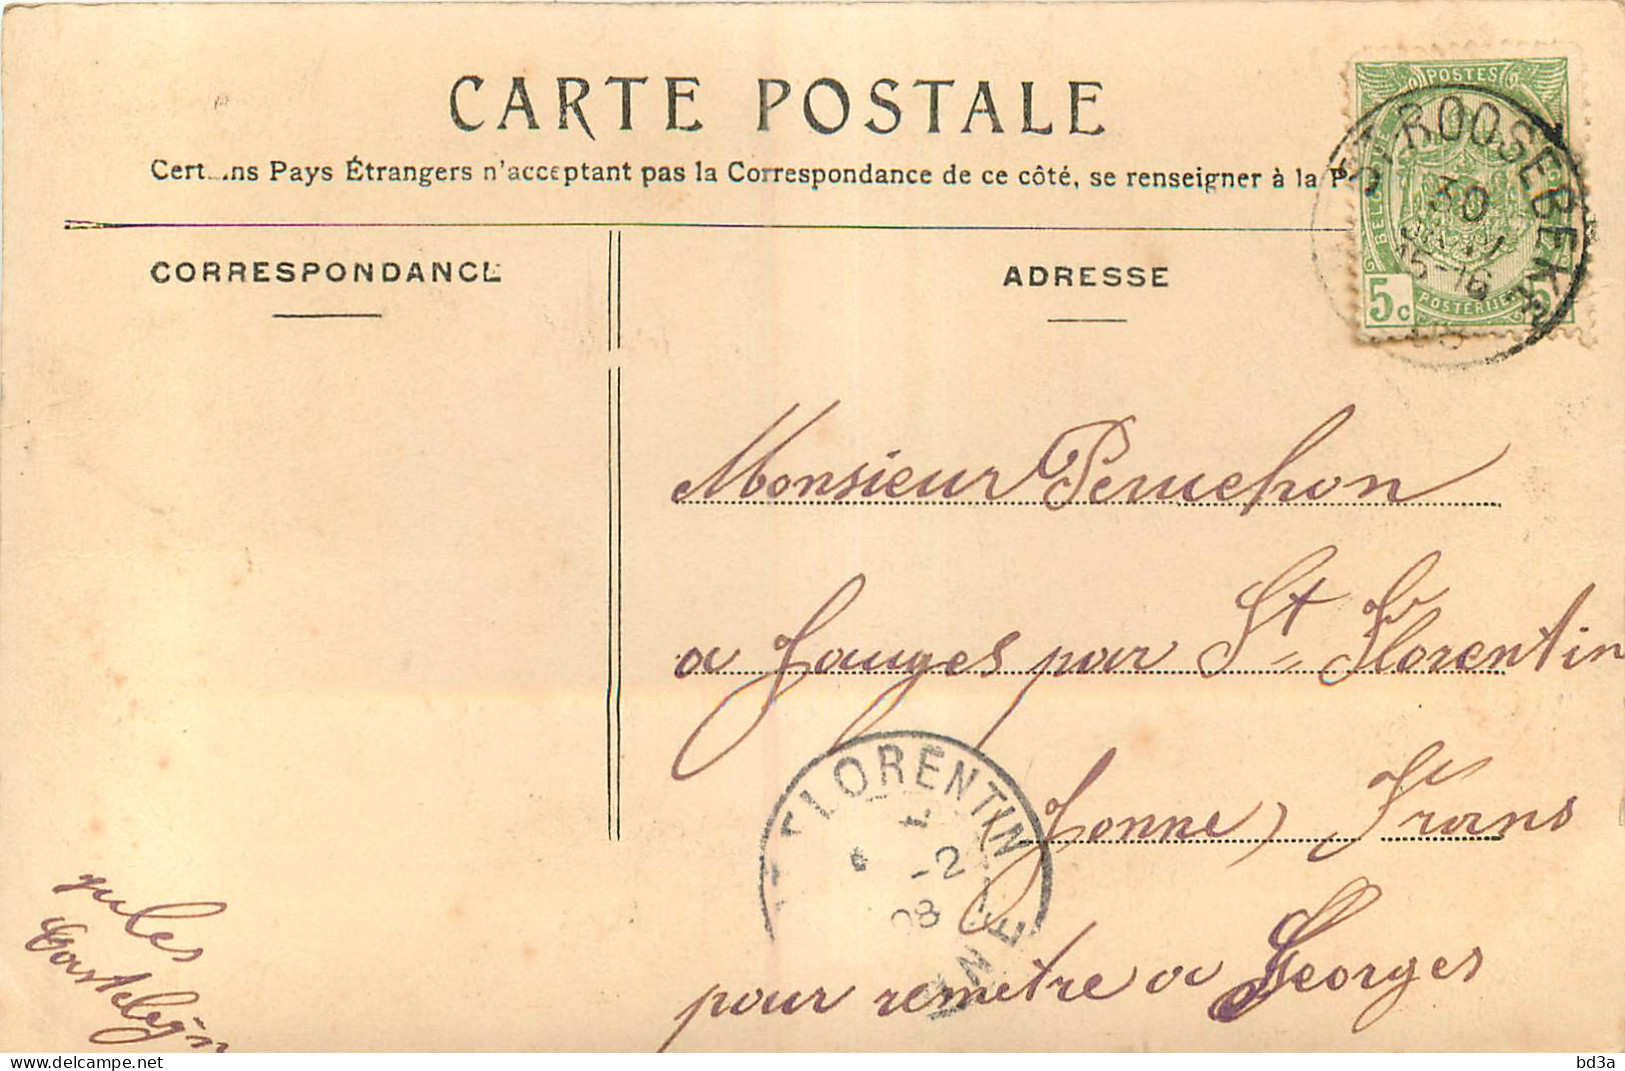 CARTE POSTALE
Cert ns Pays Étrangers n'acceptant pas la Correspondance de ce côté, se renseigner à la P
CORRESPONDANCE
ADRESSE
POSTES
5c
POSTERIJEN 5
ROOSEBEKE
30
15-16
08
Monsieur Peruchon
a Jauges par St Florentin
Yonne, Frans
pour remetre a Georges
FLORENTIN
-2
08
YONNE
Jules
Casteleyn
bd3a